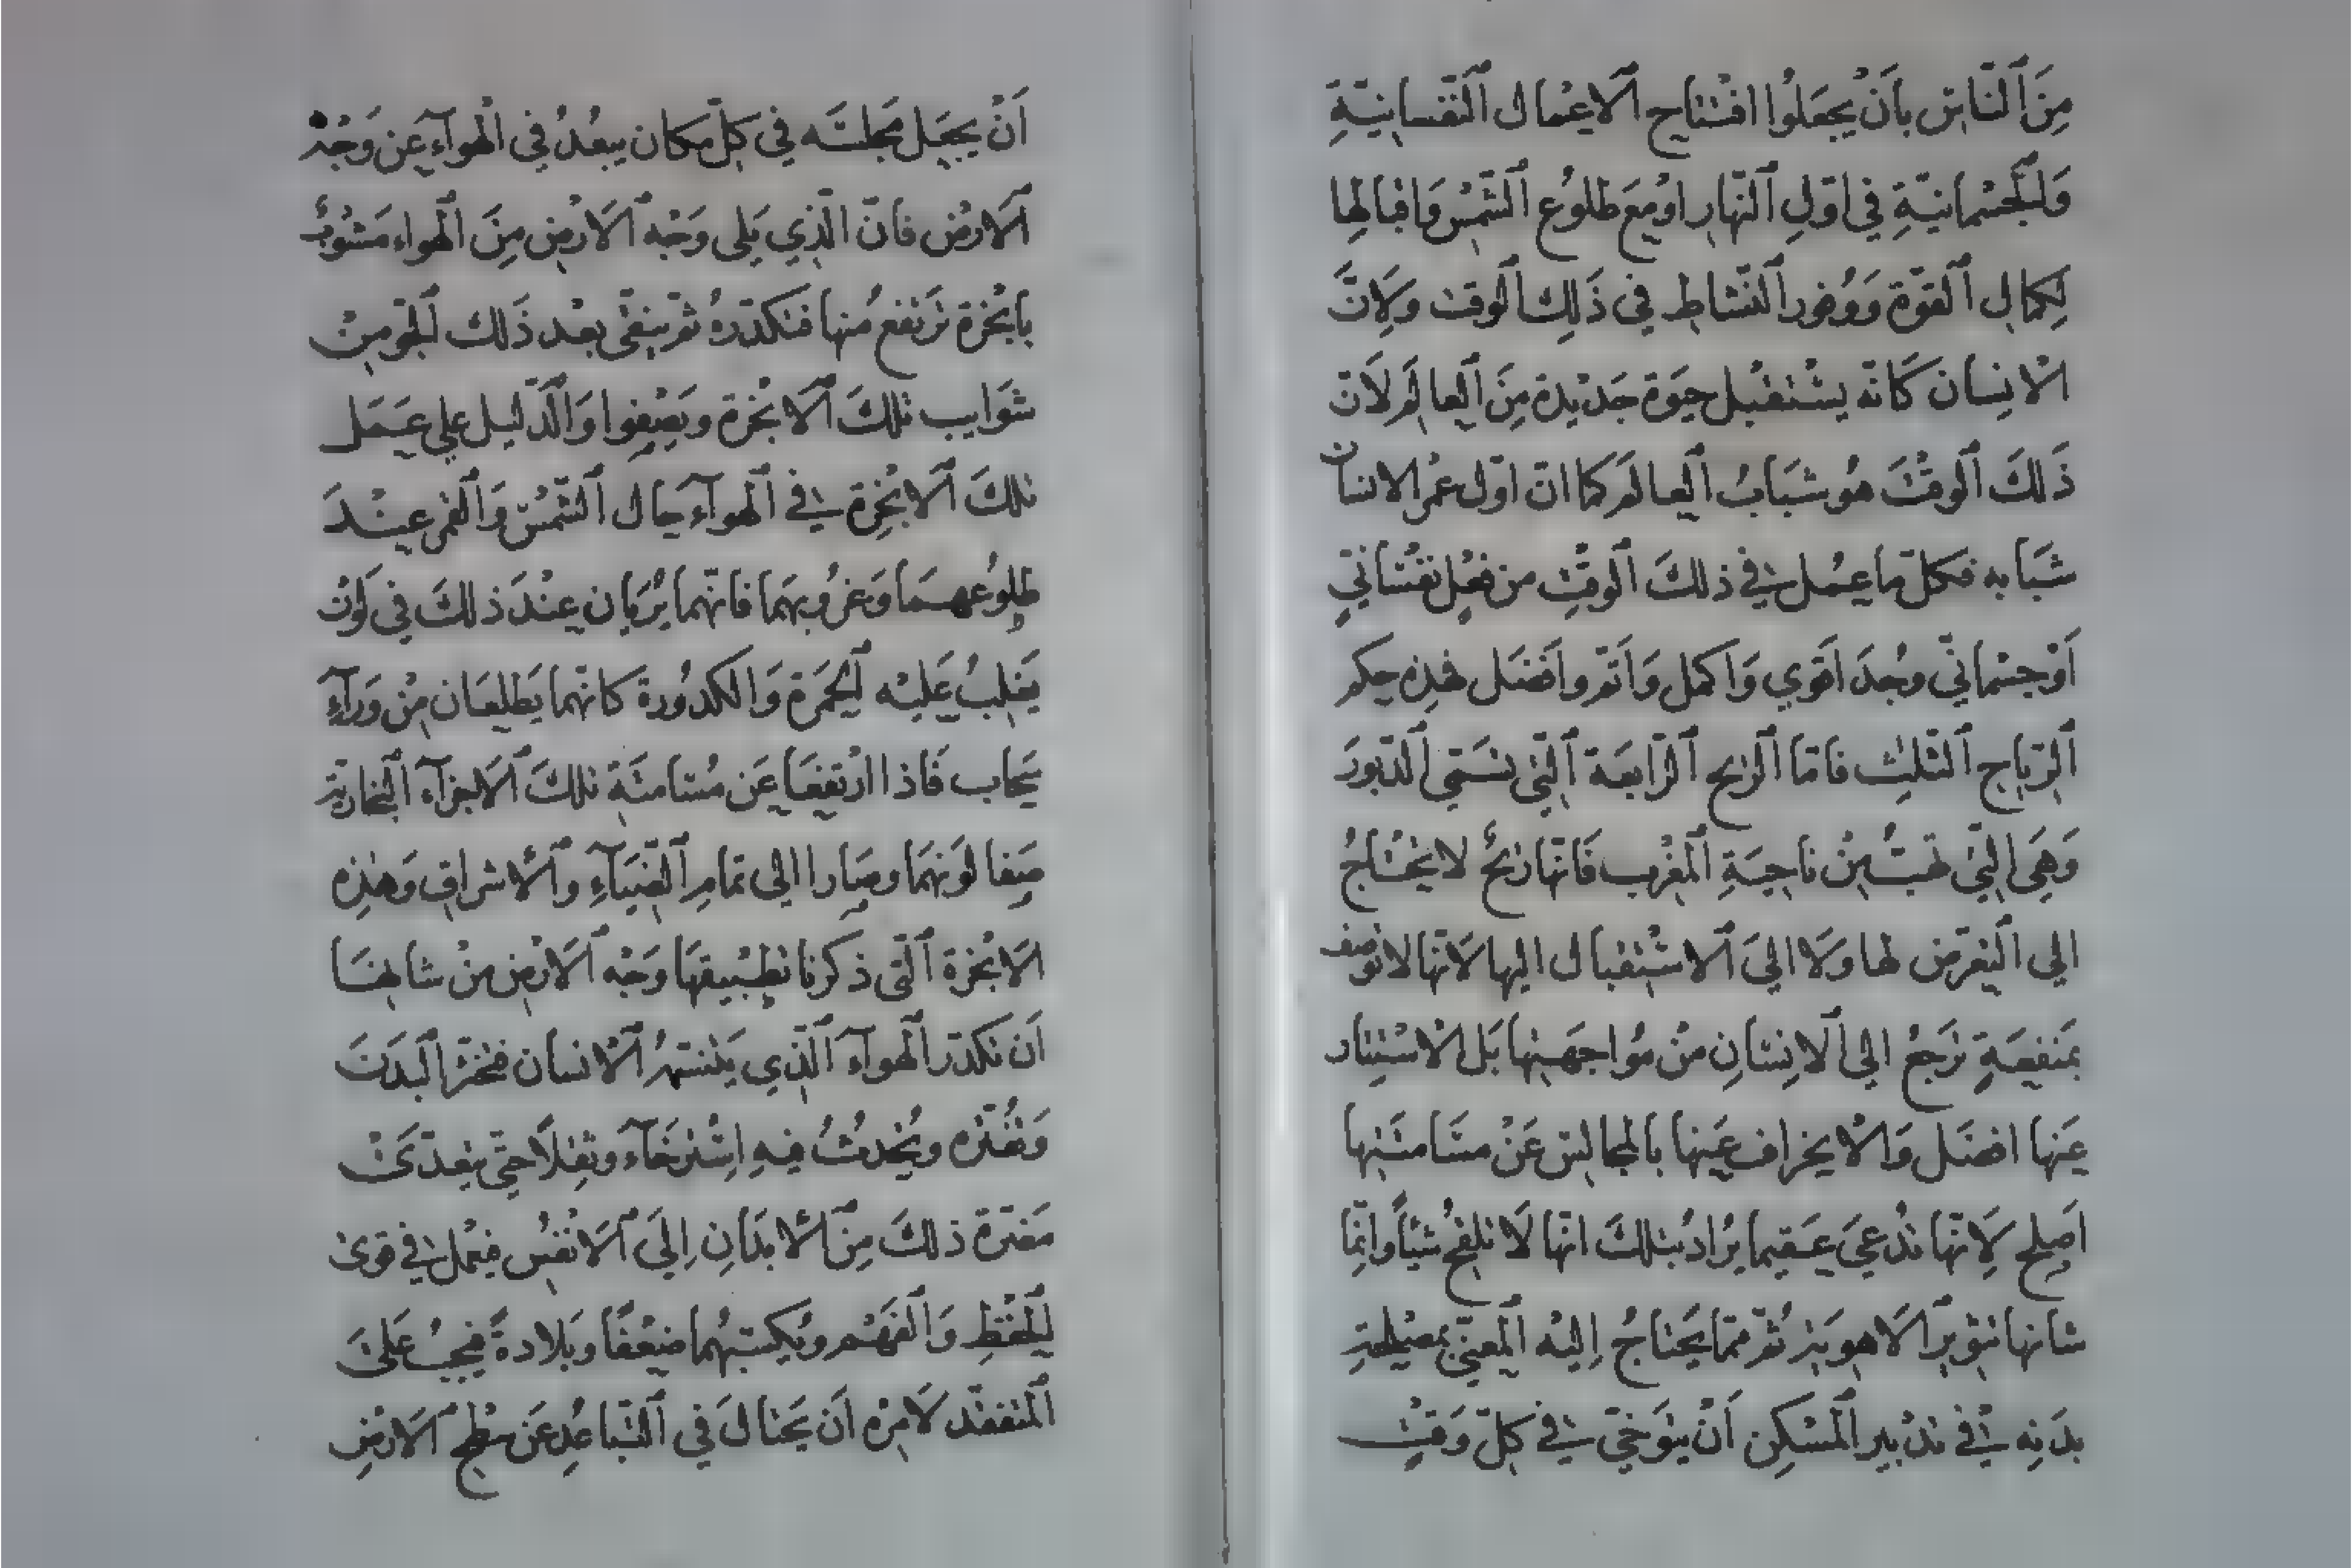 مِنَ ٱلنَّاسِ بأَنْ يجعَلُوا افْتتاح ٱلاعْمال ٱلنّفسانيّةِ
وَٱلجُسْمانيّةِ في اوّلِ ٱلنّهارِ اوْ مع طلوُع ٱلشّمْسِ وَاقبالها
لِكمالِ ٱلقوّة وَوُفورِ ٱلنّشاطِ في ذَلِكَ ٱلوقت وَلِأنَّ
ٱلانسان كَانّه يسْتقبل حيَوة جَديْدة مِنَ ٱلعالم لأنّ
ذَلكَ ٱلوقْتَ هُو شبَابُ ٱلعالم كما انّ اوّل عمْر الانسان
شبَابه فكلّ ما عمل في ذلكَ ٱلوقْتِ من فعْلٍ نفْسَانيٍّ
اَوْ جسْمانيّ وجُدَ اَقوي وَاكمل وَأتمّ وأفضَل فهذِه حكم
ٱلرّياح ٱلثّلث فامّا ٱلريح ٱلرّابعَة ٱلّتي تسَمّي ٱلدّبورَ
وَهيَ الّتي تهبّ مِنْ ناحيَةِ ٱلمغْرب فَانّها ريحٌ لا يحْتاجُ
الي ٱلتعرّض لها وَلا اليَ ٱلاسْتقبال اليها لاَنّها لا توصف
بمَنفعَةٍ ترَجعُ الي ٱلانسَانِ منْ مُواجهَتها بَل الاسْتِتار
عَنها افضَل وَالانحِراف عَنها بالمجالس عَنْ مسَامتَتها
اَصلح لِاَنّها تدْعيَ عَقيما يرُادُ بذلكَ انّها لَا تلقحُ شيْأً وانّما
شانها تثوير ٱلاهويَة ثُمّ ممّا يَحتاجُ اِليْه ٱلمعْنيّ بمصْلحة
بدَنِه في تدْبير ٱلمسْكِن اَنْ يتَوخّيَ في كلّ وَقتْ
اَنْ يجعَل مَجلسَه في كلّ مكان يبعُدُ في ٱلْهوآءِ عَن وَجْه
ٱلارْض فانّ الّذي يَلي وَجْه ٱلاَرْضِ مِنَ ٱلهواء مَشُوبٌ
بابْخرة ترَتفع مُنها فتكدّرهُ ثم ينقيّ بعْد ذَلك ٱلجّو مِنْ
شوَايب تلكَ ٱلابْخرة ويَصْفوا وَٱلدّليل علي عَمَل
تلكَ ٱلابْخرة في ٱلهوآء حَال ٱلشّمْس وَٱلقمر عِنْدَ
طلوُعهمَا وَغرُوبهمَا فانّهما يُرَيَان عنْدَ ذلكَ في لَوْنٍ
يَغلبُ عَليْه ٱلحُمَرة وَالكدُورة كانّهما يَطلعَان مِنْ وَرآءِ
سَحاب فَاذا ارْتفعَا عَن مُسَامتَةِ تلكَ ٱلاجزآء ٱلبُخاريّة
صَفا لوَنهمَا وصَارا الي تمامِ ٱلضّيَآءِ وٱلْاشراق وَهذِه
الابْخرة ٱلّتي ذكرنا تطبيقهَا وَجْه ٱلارْضِ منْ شانهَا
اَن تكدّر ٱلهوآءَ ٱلّذي يتَنسّمهُ ٱلانسان فتخثّر ٱلبَدَنَ
وَتفُتّره ويُحْدثُ فيهِ اِسْترخَآءً وثِقلاً حتّي يتعدّيَ
مَضرّة ذلكَ مِنَ ٱلْابدَانِ اِلَيَ ٱلاَنْفسُ فيعْمل في قويَ
ٱلحفْظِ وَٱلفَهْم ويُكسبهُما ضعْفًا وبَلادةً فيجبُ عَليَ
ٱلمتفقّد لَامرْه اَن يَحتالَ في ٱلتّباعُدِ عَن سطْح ٱلارْضِ